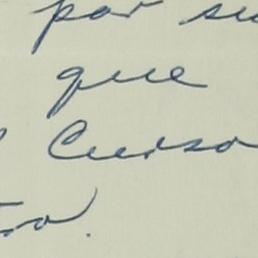 por su
que
Curso